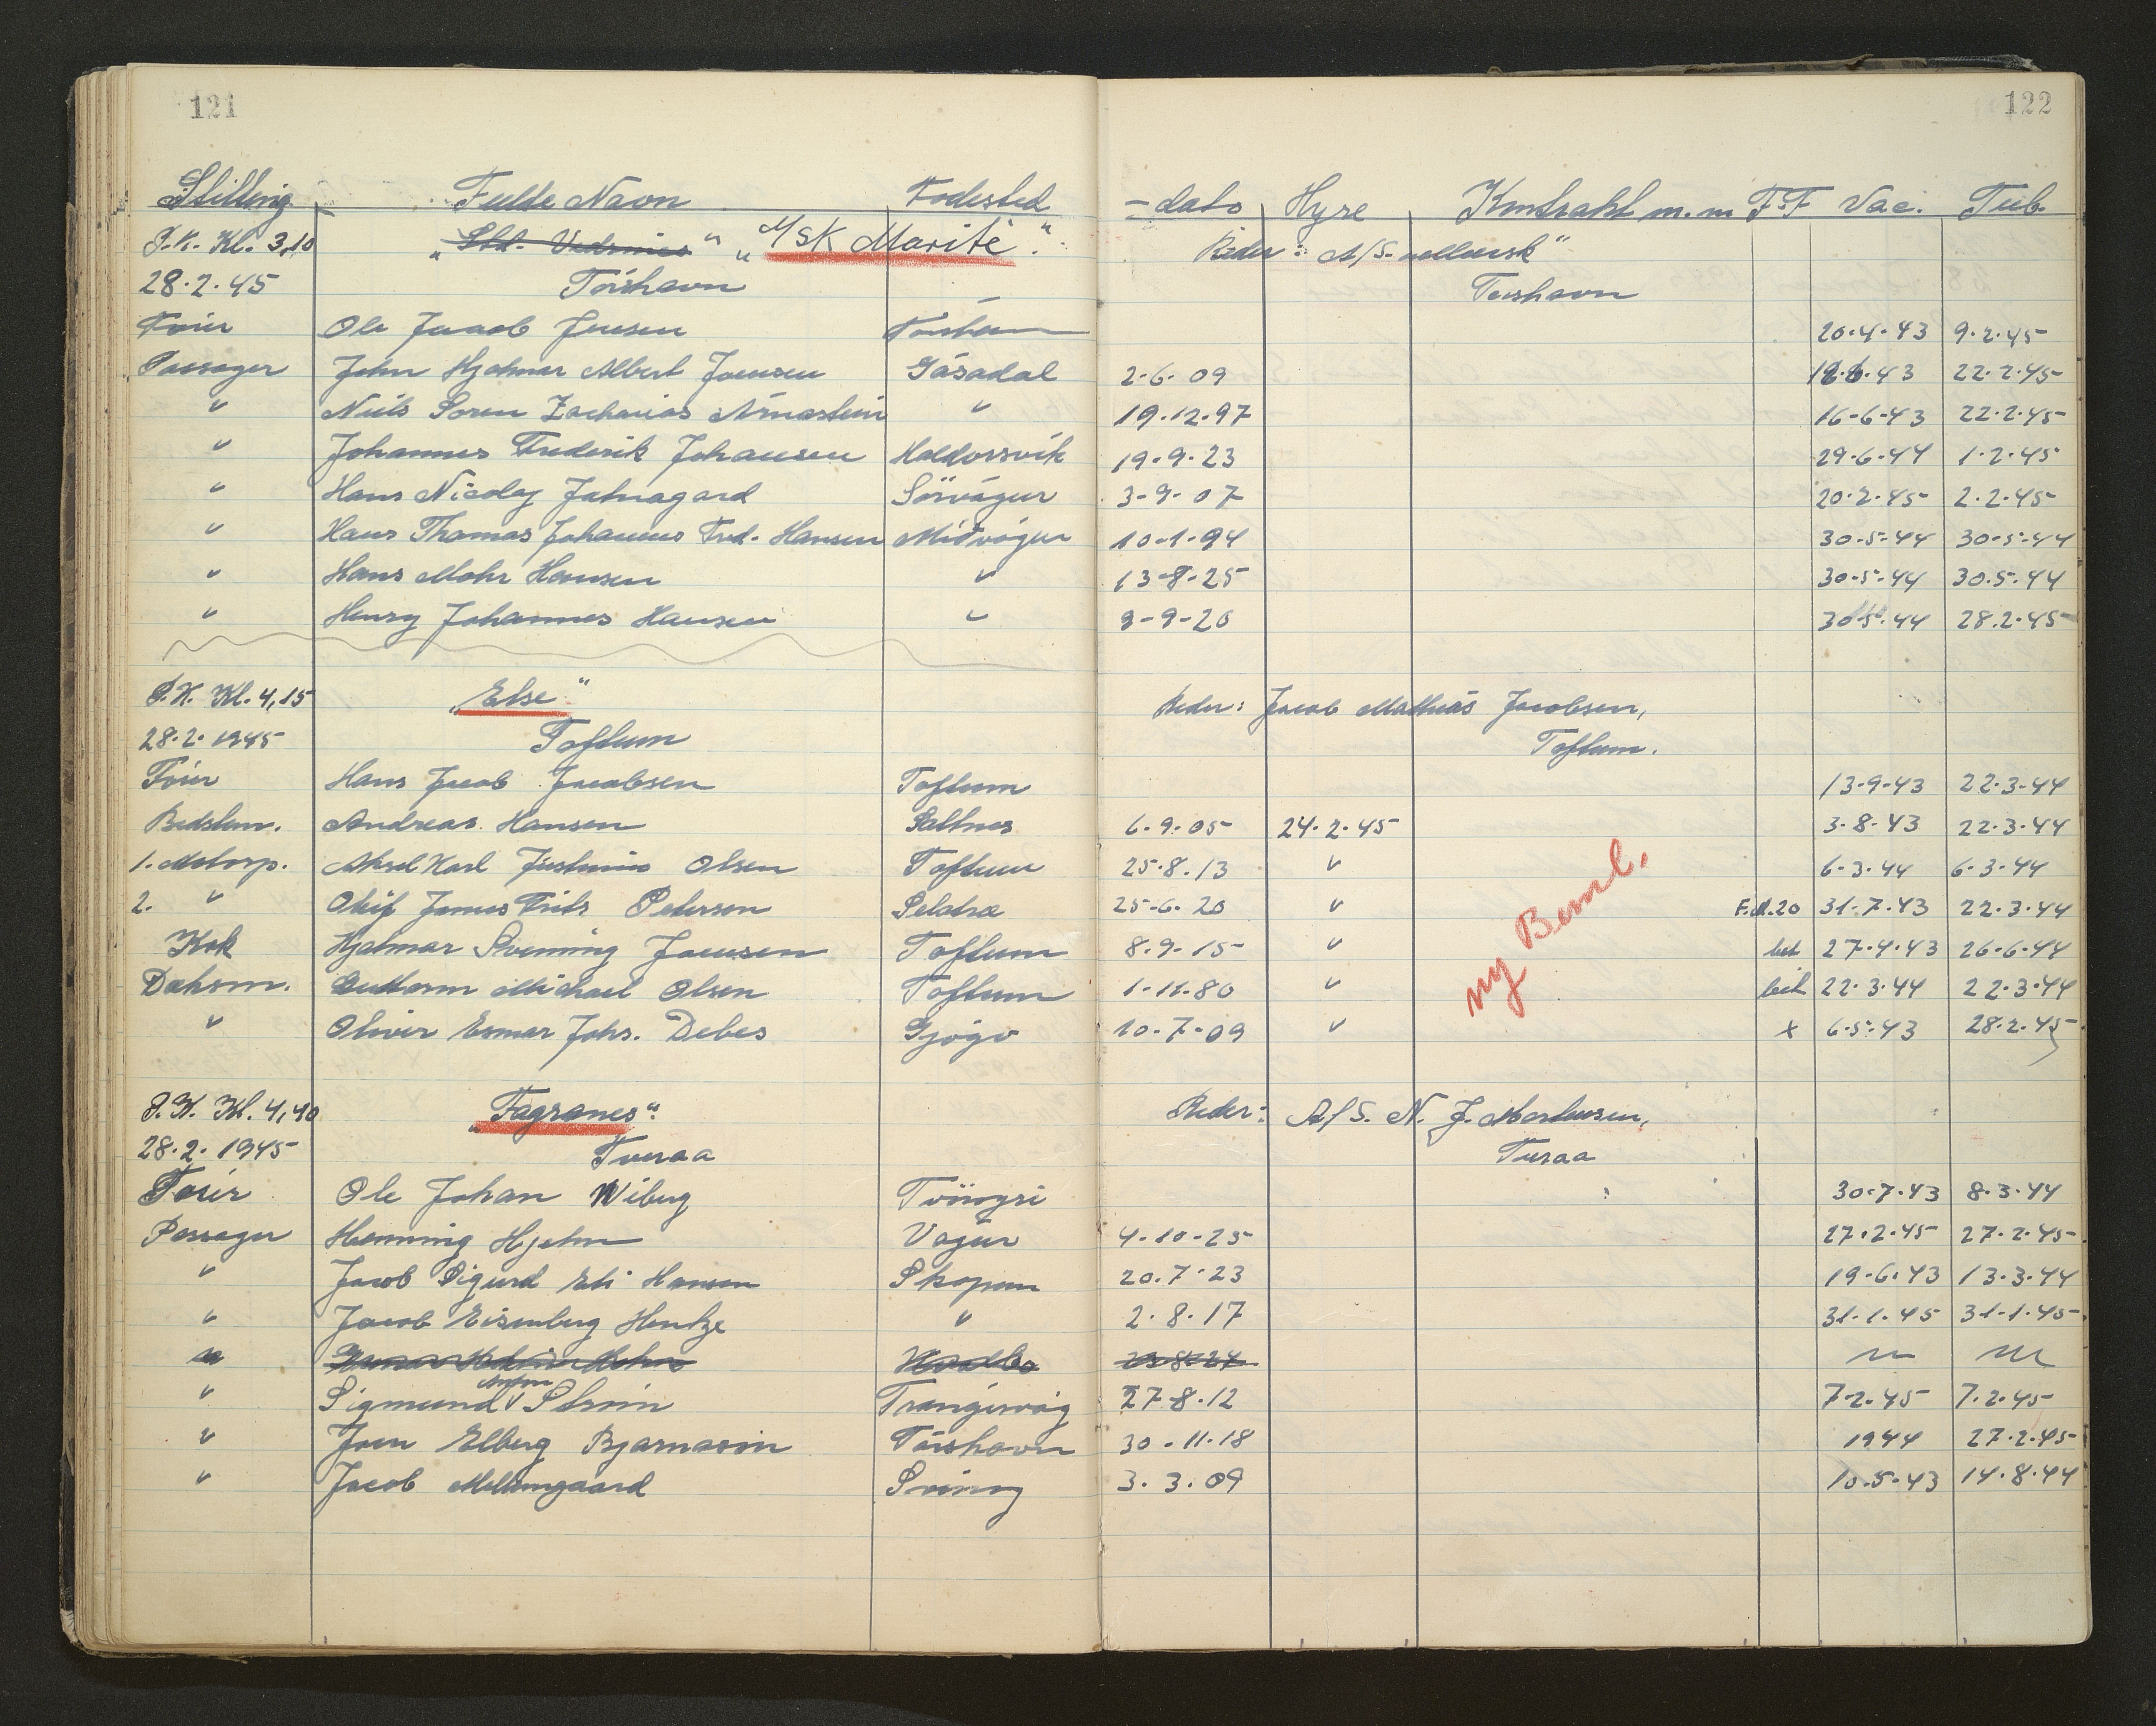 121
122
Stilling Fulde Navn Fødested -dato Hyre Kontrakt m.m F.F Vac. Tub.
P.K. Kl. 3,10 „ " „M/SK Marite". Reder: A/S.
28.2.45 Tórshavn Torshavn
Fører Ole Jacob Jensen Torshavn 20.4.43 9.2.45
Passager John Hjalmar Albert Joensen Gásadal 2.6.09 43 22.2.45
" Niels Soren Zacharias Arnastein " 19.12.97 16-6-43 22.2.45
" Johannes Frederik Johansen Haldorsvik 19.9.23 29.6.44 1.2.45
" Hans Nicolaj Jatnagard Sörvágur 3-9-07 20.2.45 2.2.45
" Hans Thomas Johannes Fred. Hansen Miðvágur 10-1-94 30-5-44 30-5-44
" Hans Mohr Hansen " 13-8-25 30-5-44 30.5.44
" Henry Johannes Hansen " 9-9-20 30.5.44 28.2.45
P.K. Kl. 4,15 „Else" Reder: Jacob Mathias Jacobsen,
28.2.1945 Toftum Toftum.
Fører Hans Jacob Jacobsen Toftum 13-9-43 22.3-44
Bedstm. Andreas Hansen Saltnes 6.9.05 24.2.45 3.8.43 22.3.44
1. Motorp. Aksel Karl Justinus Olsen Toftum 25.8.13 " 6-3.44 6-3.44
2. " James Frits Peterson Selatræ 25-6.20 " F.A.20 31.7.43 22.3.44
Kok Hjalmar Svenning Joensen Toftum 8.9.15 " bet 27.4.43 26.6.44
Daksm. Guttorm Michael Olsen Toftum 1-11.80 " bet 22.3.44 22.3.44
" Oliver Esmar Johs. Debes Gjógv 10.7-09 " x 6.5.43 28.2.45
ny Beml.
P.K. Kl. 4,40 „Fagranes" Reder: A/S. N. J. Mortensen,
28.2.1945 Tveraa Tveraa
Fører Ole Johan Wiberg Tvöroyri 30.7.43 8.3.44
Passager Henning Hjelm Vágur 4.10.25 27.2.45 27.2.45
" Jacob Sigurd Eli Hansen Skopun 20.7.23 19.6.43 13.3.44
" Jacob Eisenberg Hentze " 2.8.17 31.1.45 31.1.45
" 23.8.24
" Sigmund Anton Strøm Trangisvág 27.8.12 7.2.45 7.2.45
" Joen Elberg Bjarnason Tórshavn 30.11.18 1944 27.2.45
" Jacob Mellemgaard Svinoy 3.3.09 10.5.43 14.8.44